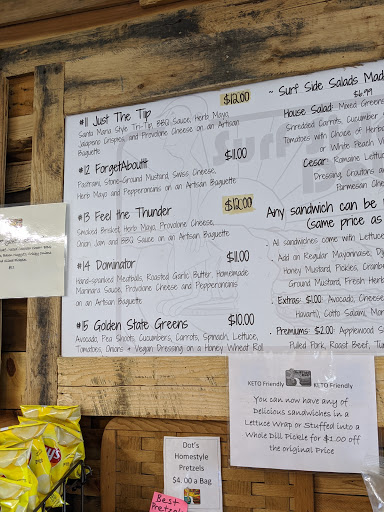 #11 Just The Tip $12.00
Santa Maria Style Tri-Tip, BBQ Sauce, Herb Mayo,
Jalapeno Crispies, and Provolone Cheese on an Artisan
Baguette
#12 ForgetAboutIt $11.00
Pastrami, Stone-Ground Mustard, Swiss Cheese,
Herb Mayo and Pepperoncini's on an Artisan Baguette
#13 Feel the Thunder $12.00
Smoked Brisket, Herb Mayo, Provolone Cheese,
Onion Jam and BBQ Sauce on an Artisan Baguette
#14 Dominator $11.00
Hand-smashed Meatballs, Roasted Garlic Butter, Homemade
Marinara Sauce, Provolone Cheese and Pepperoncini's
on an Artisan Baguette
#15 Golden State Greens $10.00
Avocado, Pea Shoots, Cucumbers, Carrots, Spinach, Lettuce,
Tomatoes, Onions + Vegan Dressing on a Honey Wheat Roll
~ Surf Side Salads Mad
$6.99
House Salad: Mixed Green
Shredded Carrots, Cucumber
Tomatoes with Choice of Herb
or White Peach
Cesar: Romaine Lettuce
Dressing, Croutons a
Parmesan Che
Any sandwich can be
(same price as
All sandwiches come with Lettuce
Add on Regular Mayonnaise,
Honey Mustard, Pickles, Cranb
Ground Mustard, Fresh Herb
Extras: $1.00 Avocado, Cheese
Havarti), Cotto Salami, Mor
Premiums: $2.00 Applewood S
Pulled Pork, Roast Beef, Tu
KETO Friendly KETO Friendly
You can now have any of
Delicious sandwiches in a
Lettuce Wrap or Stuffed into a
Whole Dill Pickle for $1.00 off
the original Price
Dot's
Homestyle
Pretzels
$4.00 a Bag
Best
Pretzels